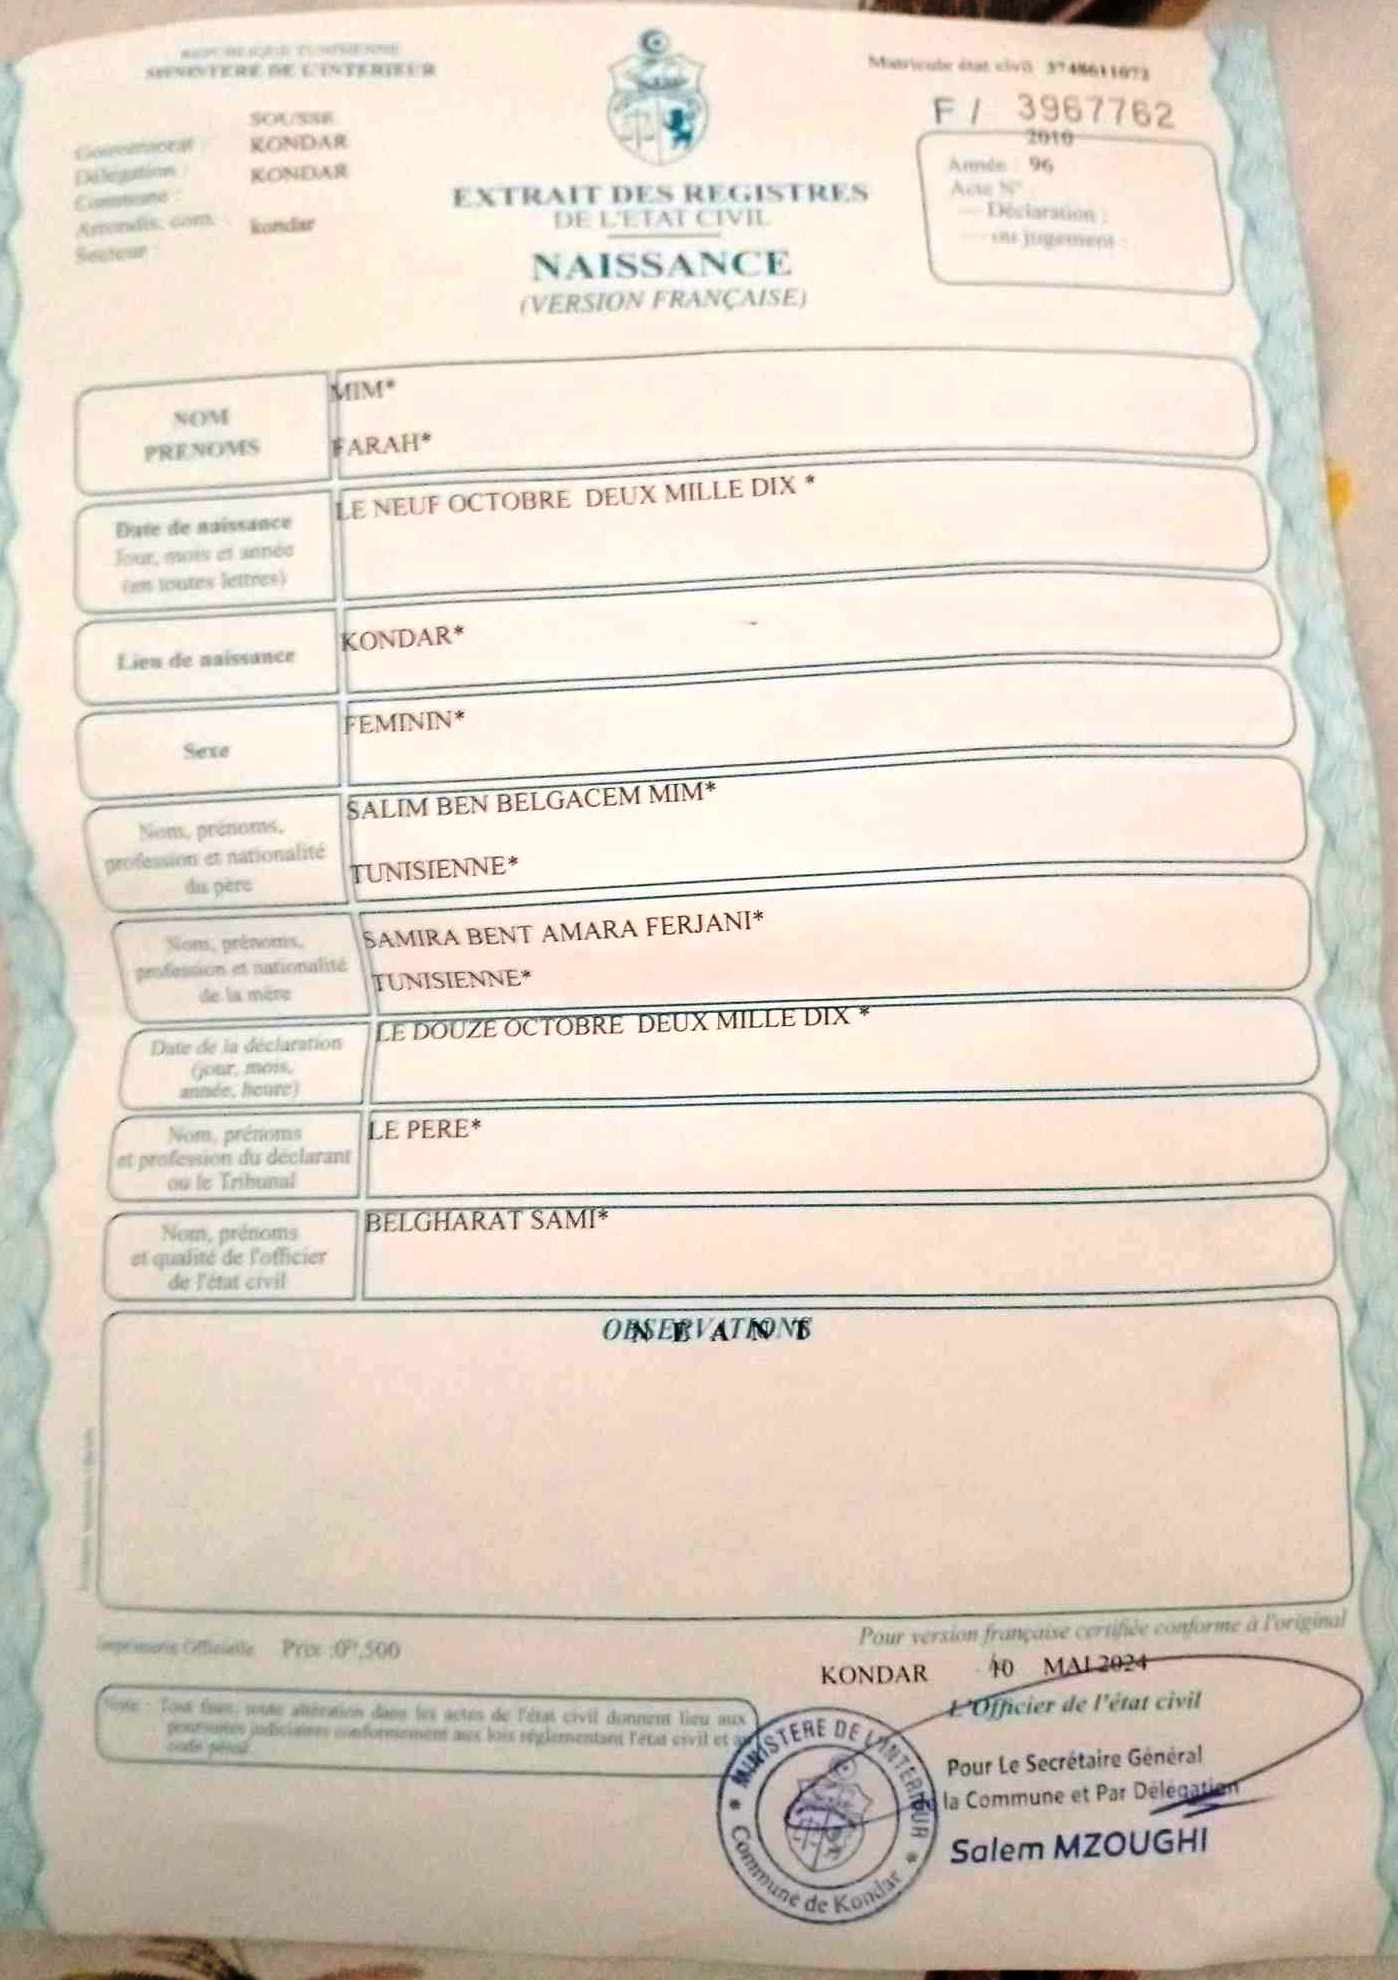 REPUBLIQUE TUNISIENNE
MINISTERE DE L'INTERIEUR
Matricule état civil 3748611073
F / 3967762
Gouvernorat : SOUSSE
Délégation : KONDAR
Commune : KONDAR
Arrondis. com. :
Secteur : kondar
EXTRAIT DES REGISTRES
DE L'ETAT CIVIL
NAISSANCE
(VERSION FRANÇAISE)
2010
Année : 96
Acte N°
— Déclaration :
— ou jugement :
NOM MIM*
PRENOMS FARAH*
Date de naissance LE NEUF OCTOBRE DEUX MILLE DIX *
Jour, mois et année
(en toutes lettres)
Lieu de naissance KONDAR*
Sexe FEMININ*
Nom, prénoms, SALIM BEN BELGACEM MIM*
profession et nationalité
du père TUNISIENNE*
Nom, prénoms, SAMIRA BENT AMARA FERJANI*
profession et nationalité TUNISIENNE*
de la mère
Date de la déclaration LE DOUZE OCTOBRE DEUX MILLE DIX *
(jour, mois,
année, heure)
Nom, prénoms LE PERE*
et profession du déclarant
ou le Tribunal
Nom, prénoms BELGHARAT SAMI*
et qualité de l'officier
de l'état civil
OBSERVATIONS
N E A N T
Imprimerie Officielle Prix :0ᴰᵗ,500
Pour version française certifiée conforme à l'original
KONDAR 10 MAI 2024
L'Officier de l'état civil
Note : Tout faux, toute altération dans les actes de l'état civil donnent lieu aux
poursuites judiciaires conformement aux lois réglementant l'état civil et au
code pénal.
Pour Le Secrétaire Général
la Commune et Par Délégation
Salem MZOUGHI
* MINISTERE DE L'INTERIEUR *
Commune de Kondar